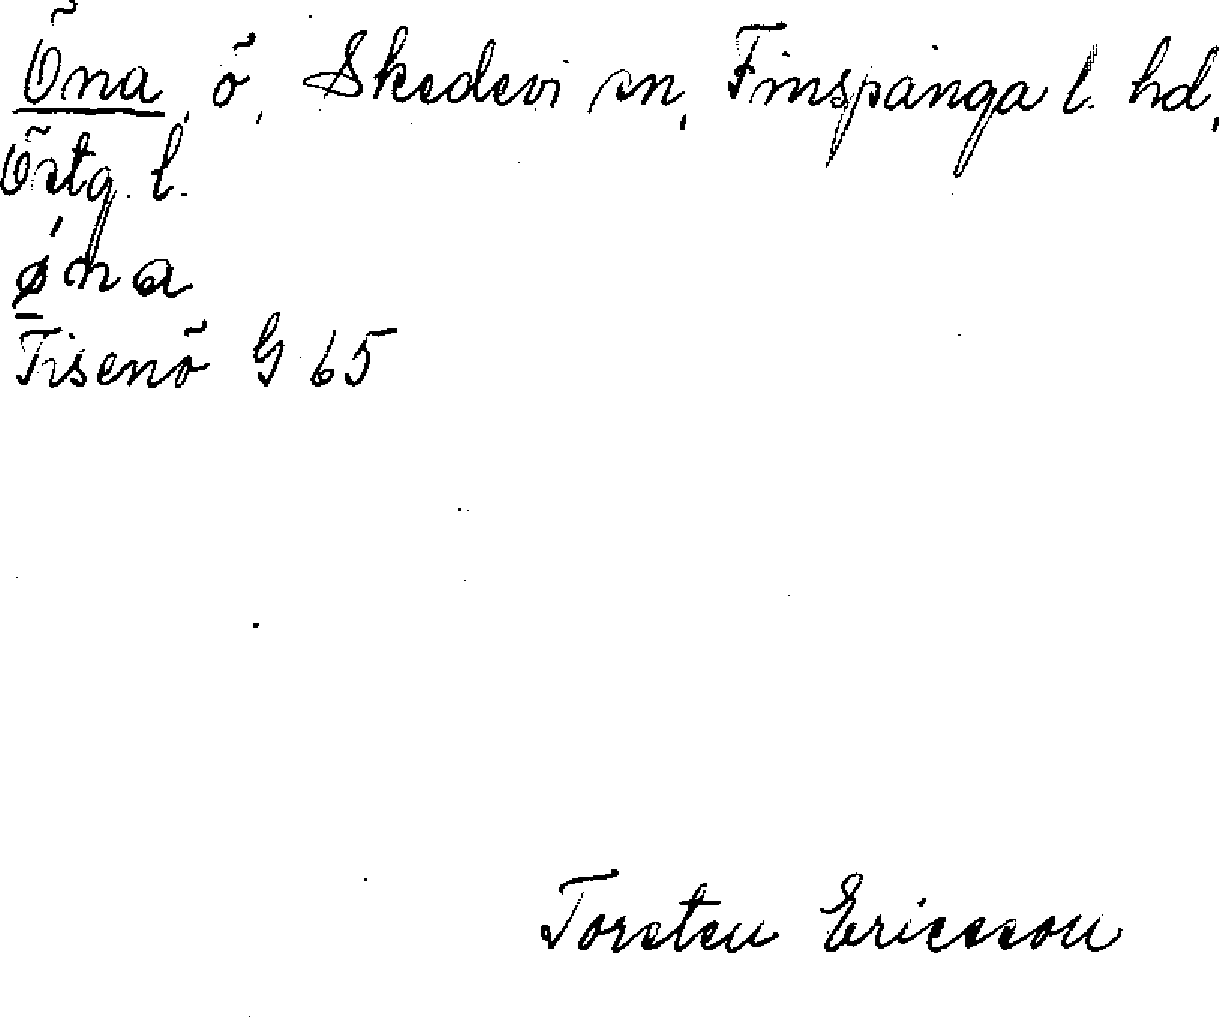 Öna, ö, Skedevi sn, Finspånga l. hd,
Östg. l.
ǿna
Tisenö G 65
Torsten Ericsson